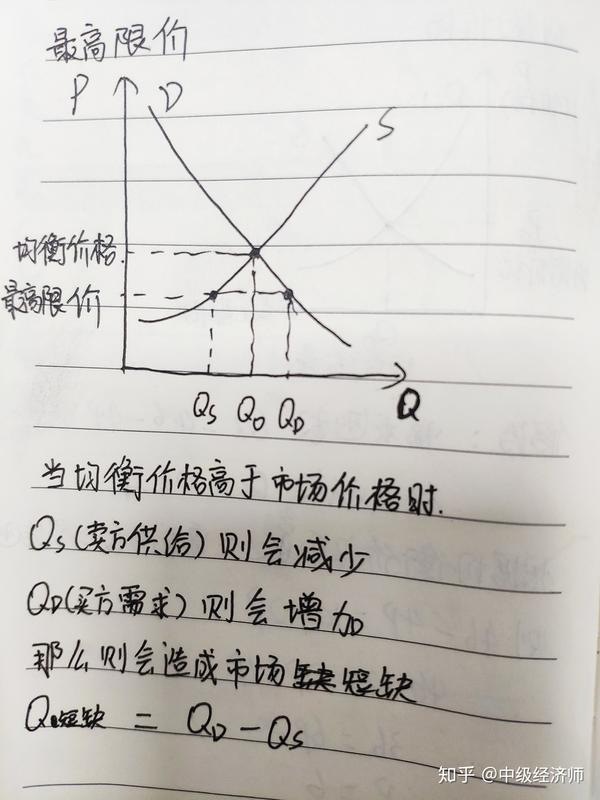 最高限价
P
D
S
均衡价格
最高限价
Qs Q0 QD
Q
当均衡价格高于市场价格时.
Qs(卖方供给)则会减少
QD(买方需求)则会增加
那么则会造成市场短缺
Q短缺 = QD - Qs
知乎 @中级经济师